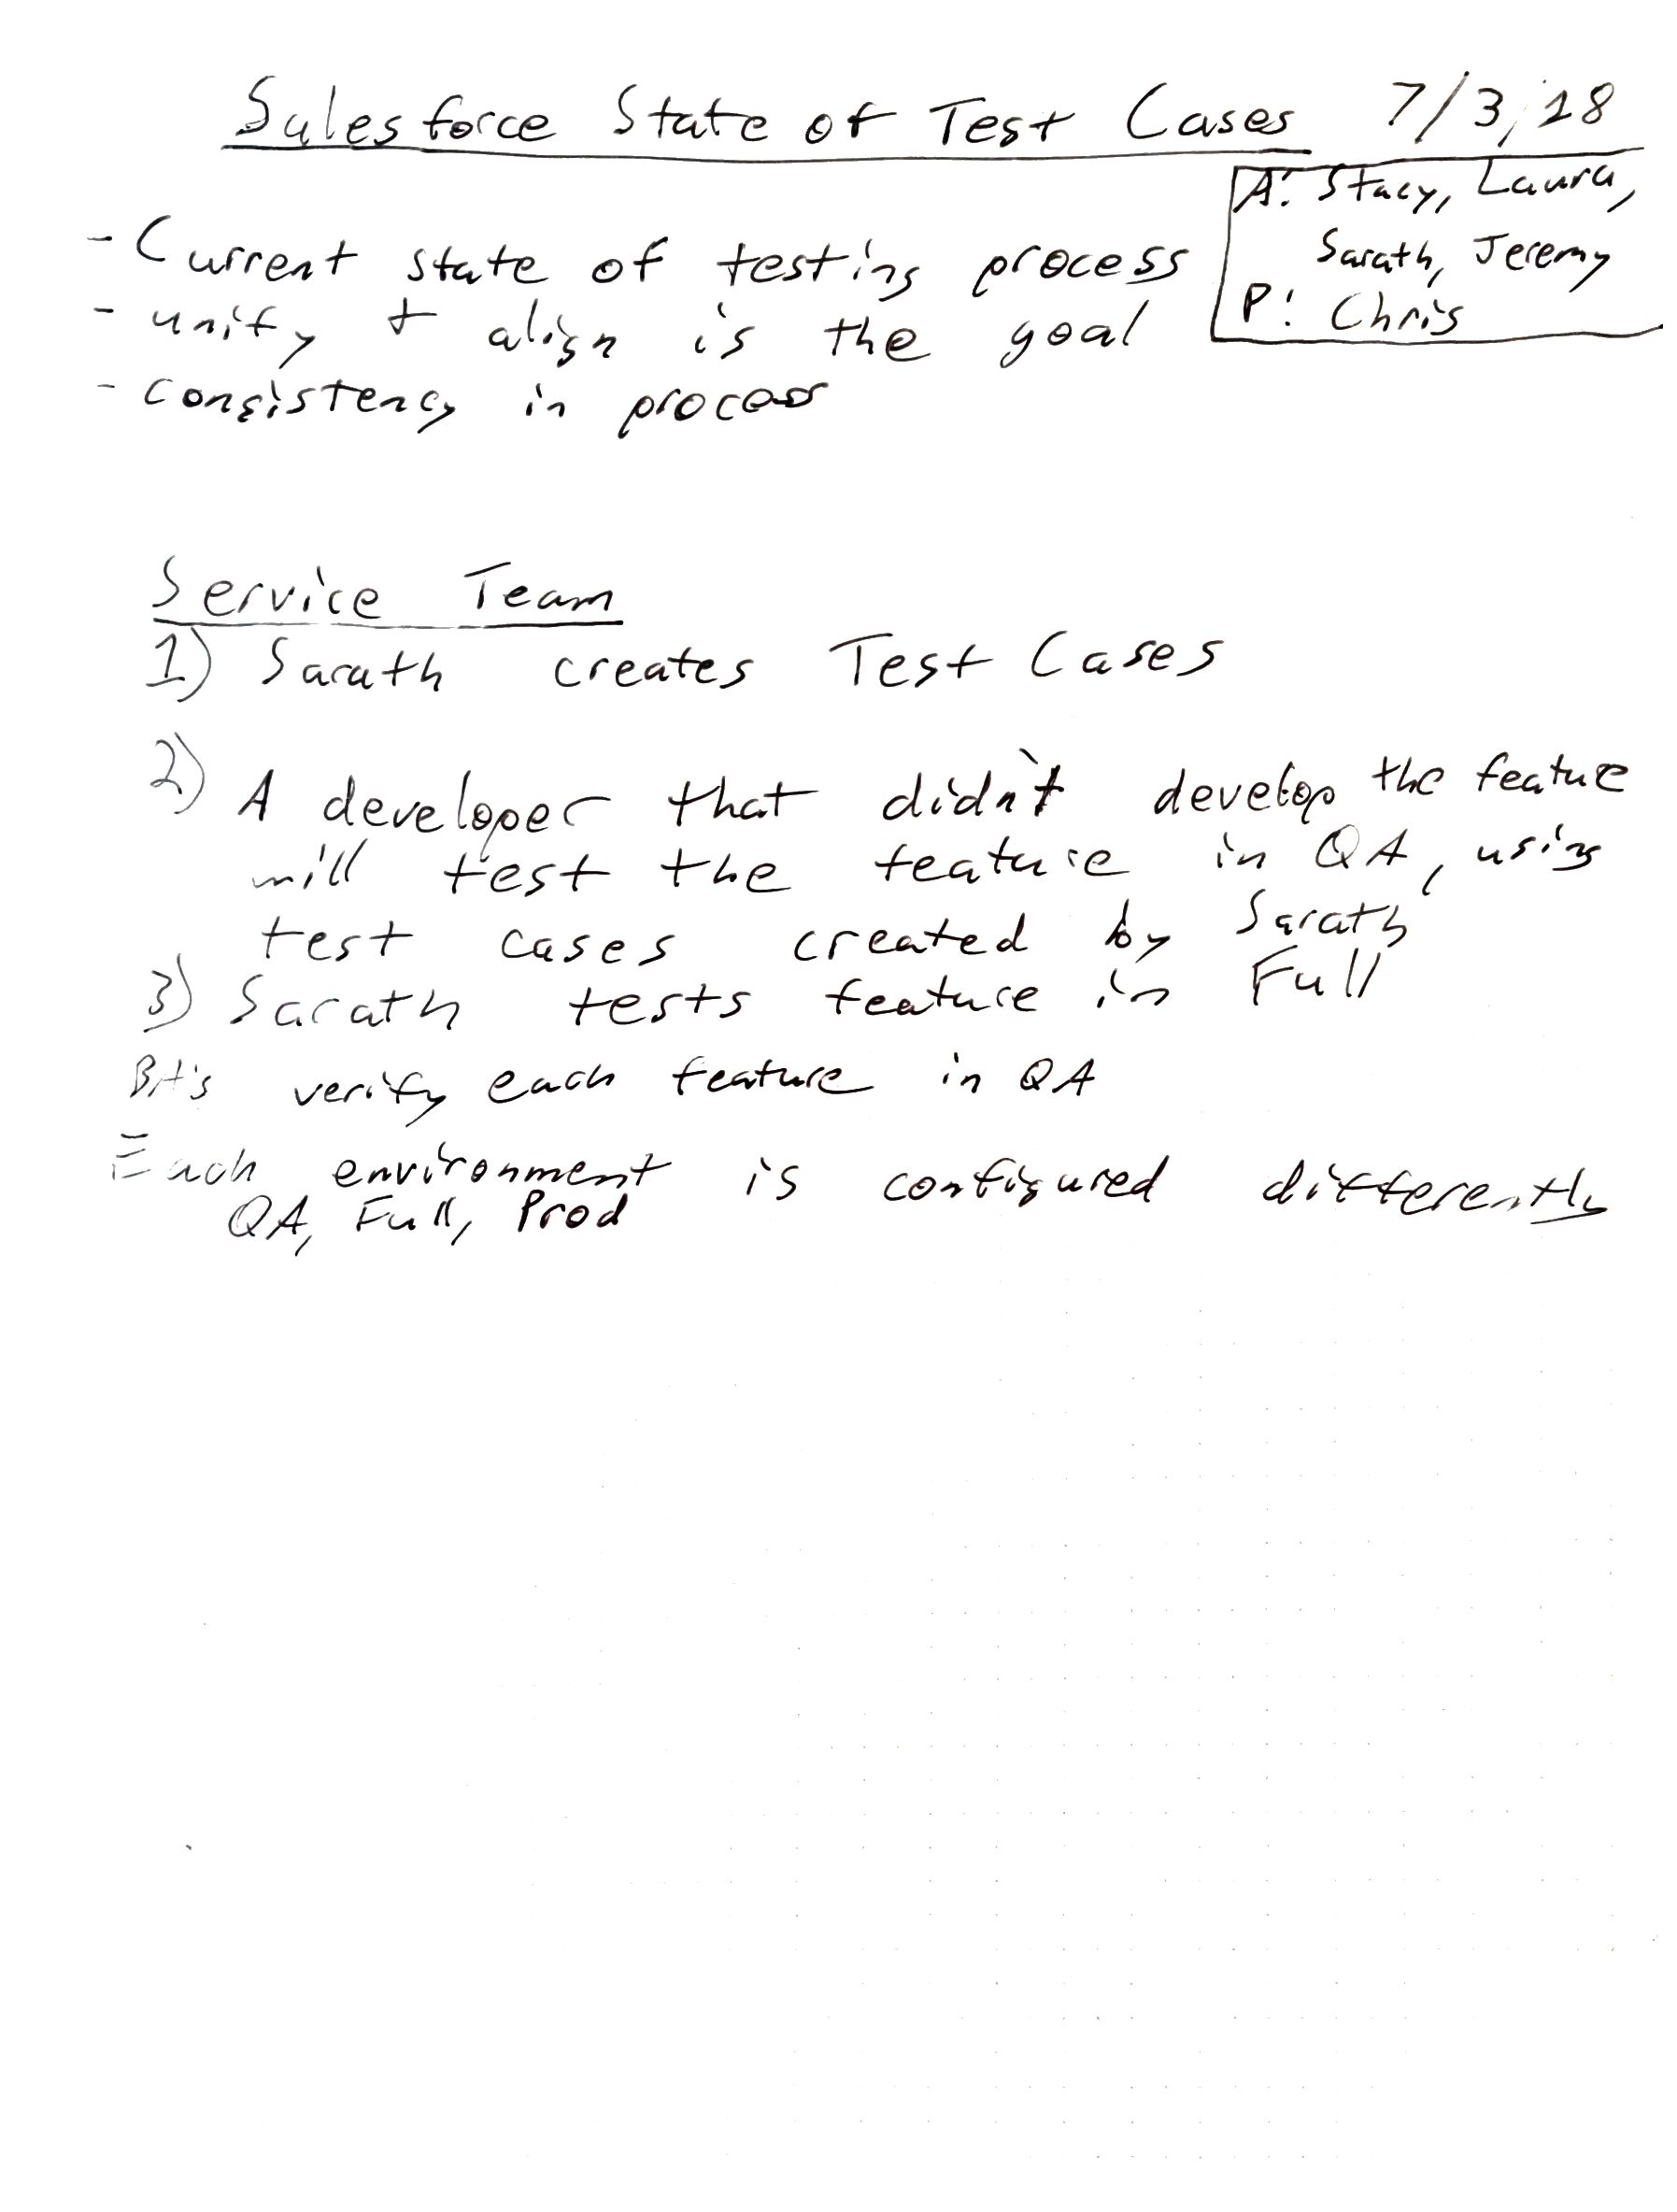 Salesforce State of Test Cases 7/3/18
A: Stacy, Laura,
Sarath, Jeremy
P: Chris
- Current state of testing process
- unify + align is the goal
- consistency in process
Service Team
1) Sarath creates Test Cases
2) A developer that didn't develop the feature
will test the feature in QA, using
test cases created by Sarath
3) Sarath tests feature in Full
BA's verify each feature in QA
Each environment is configured differently
QA, Full, Prod